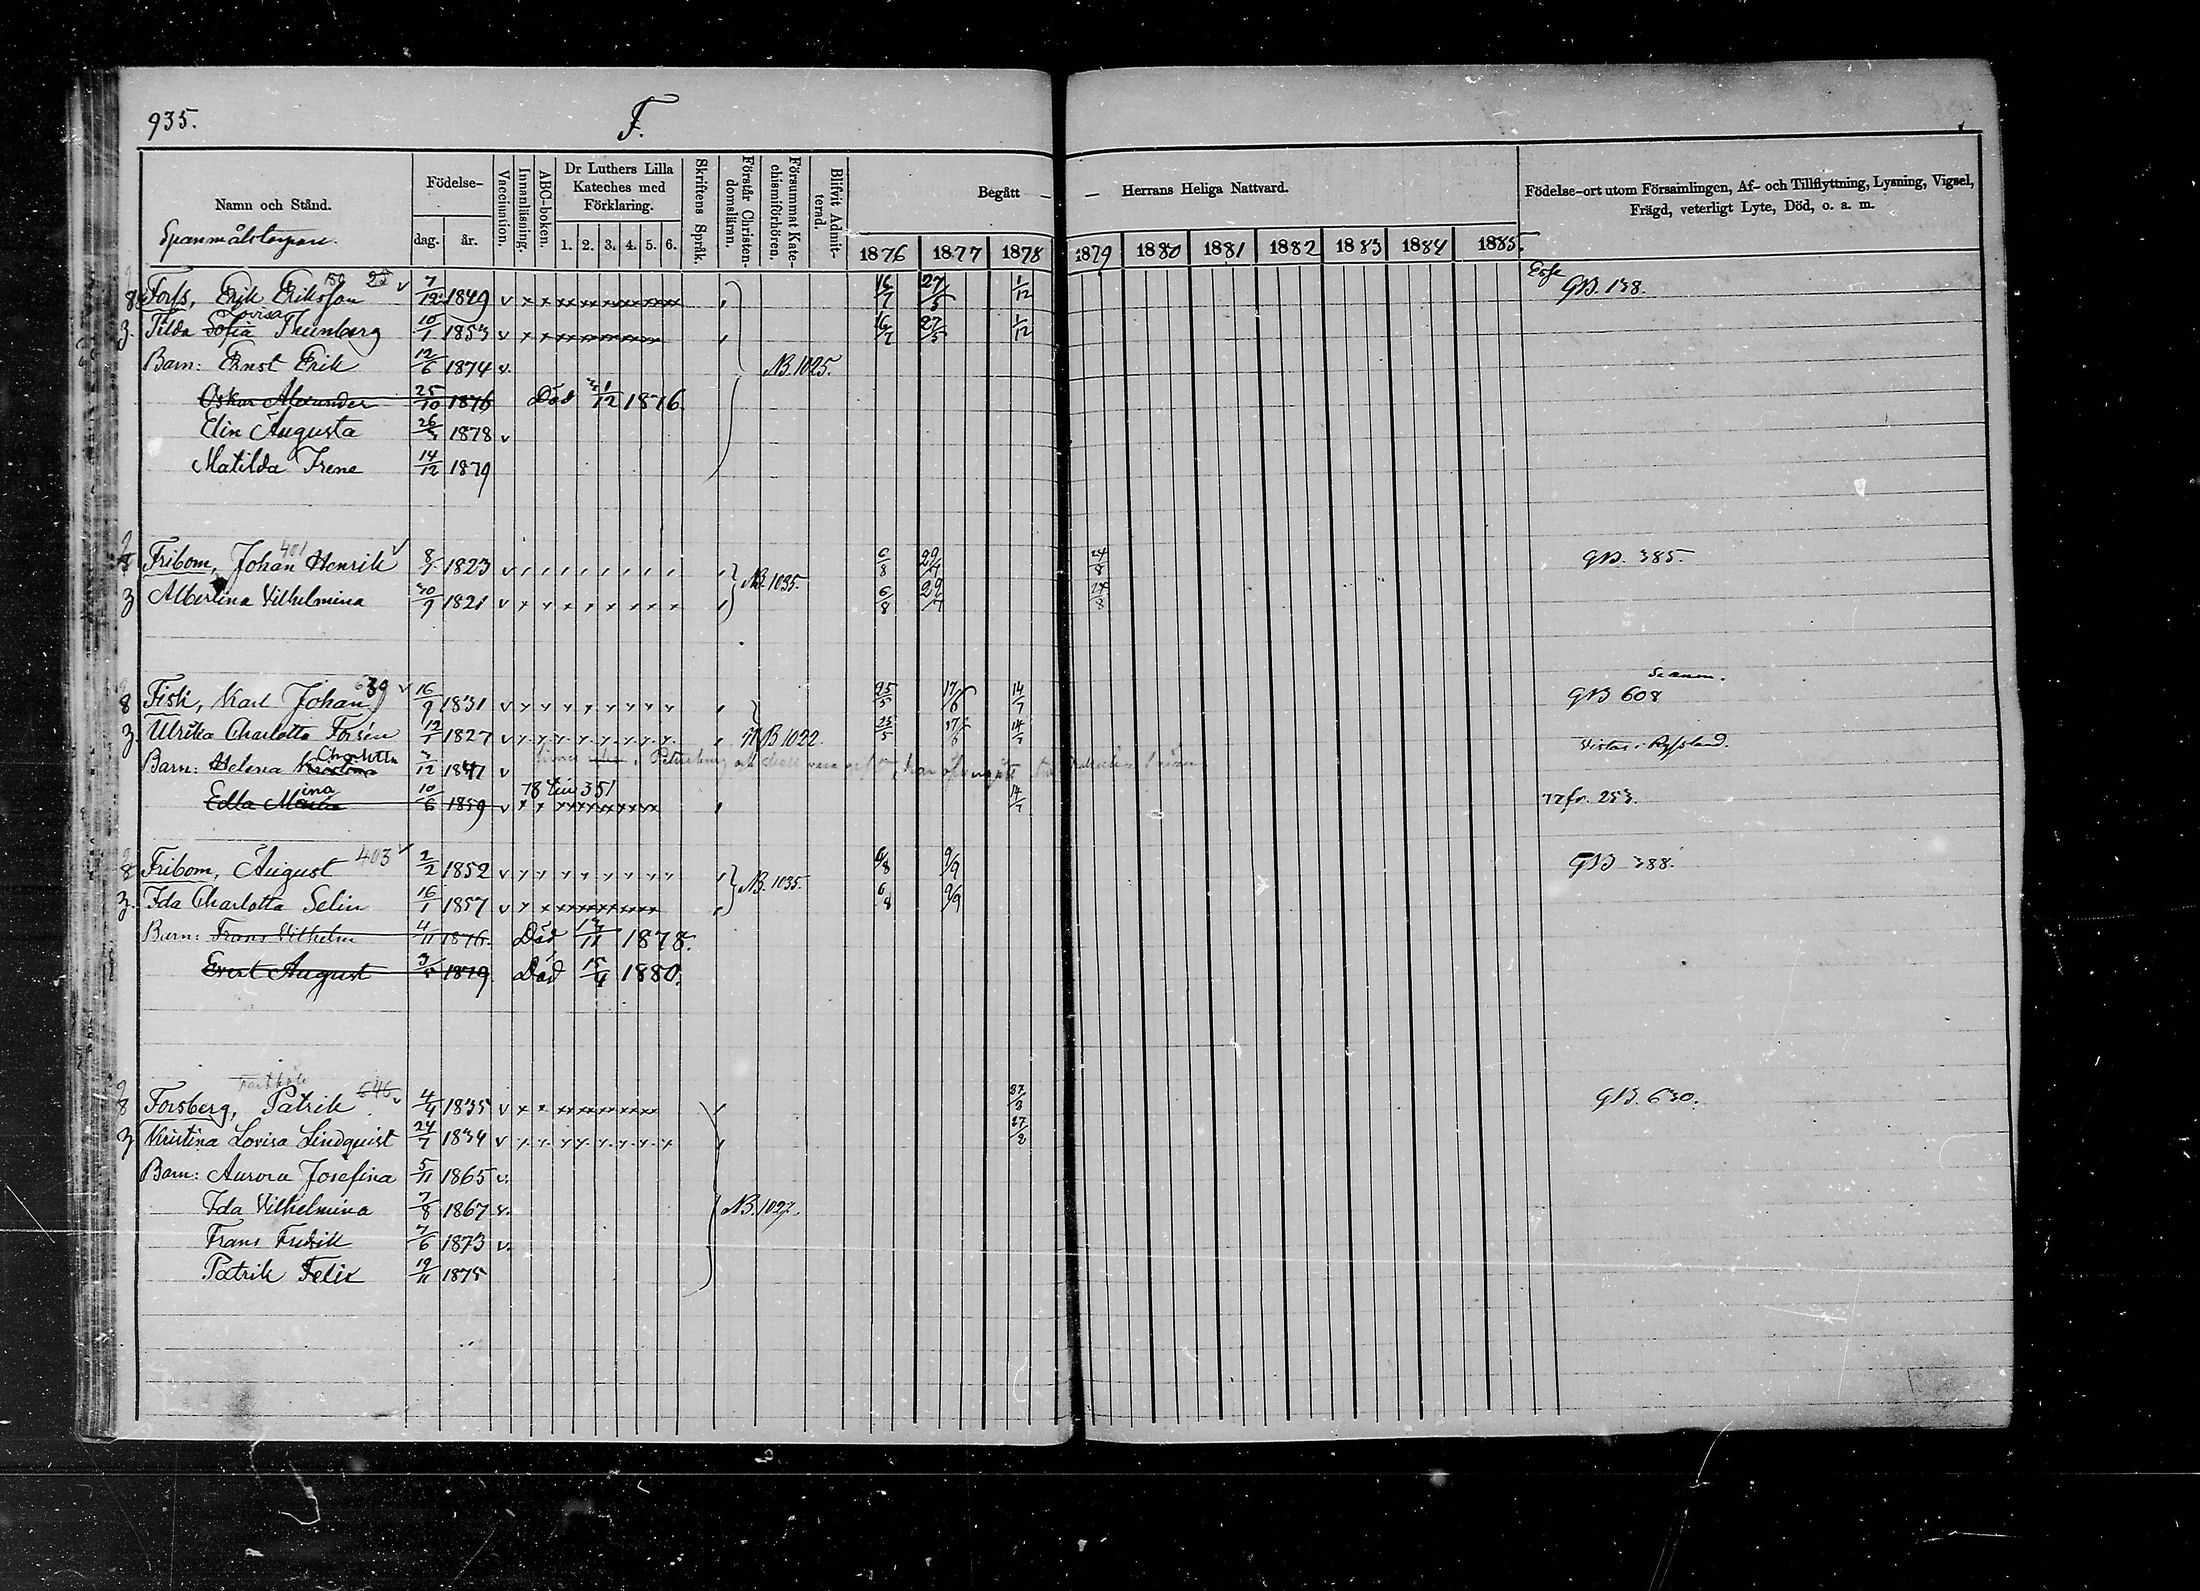 935.
F.
Namn och Stånd.
Födelse-
dag.
år.
Vaccination.
Innanläsning.
ABC-boken.
Dr Luthers Lilla
Kateches med
Förklaring.
1. 2. 3. 4. 5. 6.
Skriftens Språk.
Förstår Christen-
domsläran.
Försummat Kate-
chismiförhören.
Blifvit Admit-
terad.
Begått —
— Herrans Heliga Nattvard.
1876 1877 1878 1879 1880 1881 1882 1883 1884 1885.
Födelse-ort utom Församlingen, Af- och Tillflyttning, Lysning, Vigsel,
Frägd, veterligt Lyte, Död, o. a. m.
Forss, Erik Eriksson 7/12 1849 16/7 27/5 1/12 GB. 138.
Tilda Sofia Lovisa Thunberg 10/1 1853 16/7 27/5 1/12
Barn: Ernst Erik 12/6 1874 v. NB. 1025.
Oskar Alexander 25/10 1876 Död 1/12 1876.
Elin Augusta 26/3 1878 v
Matilda Irene 14/12 1879
Fribom, Johan Henrik 401 1823 6/8 29/7 24/8 GB. 385.
Albertina Vilhelmina 30/9 1821 NB. 1035. 6/8 29/7 24/8
Fisk, Karl Johan 639 16/9 1831 25/5 17/6 14/7 GB 608
Ulrika Charlotta Forsén 1827 NB 1022. 25/5 17/6 14/7 Vistas i Ryssland.
Barn: Helena Kristina Charlotta 1841 v
Edla Maria ina 10/6 1859 78 351 14/7 253.
Fribom, August 403 2/2 1852 6/8 9/9 GB 388.
Ida Charlotta Selin 16/1 1857 NB. 1035. 6/8 9/9
Barn: Frans Vilhelm 4/11 1876. Död 1878.
Evert August 1879. Död 15/4 1880.
Forsberg, Patrik 646 4/4 1835 GB. 630.
Kristina Lovisa Lindquist 24/7 1834
Barn: Aurora Josefina 5/11 1865 v.
Ida Vilhelmina 7/8 1867 v. NB. 1027.
Frans Fredrik 7/6 1873 v.
Patrik Felix 19/11 1875